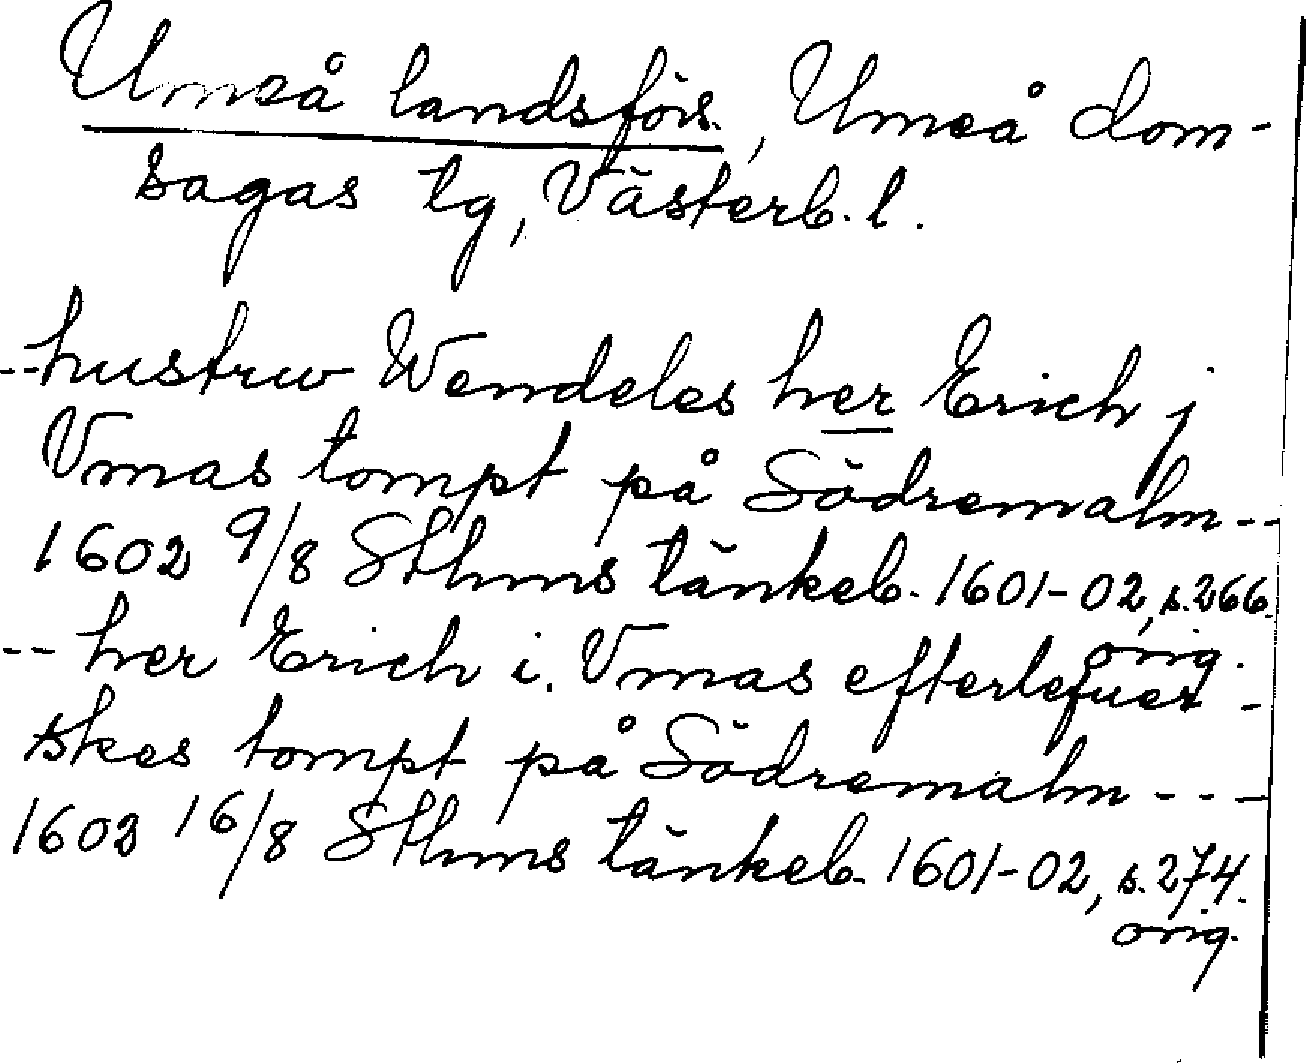 Umeå landsförs., Umeå dom-
sagas tg, Västerb. l.
--hustrw Wendeles her Erich j
Vmas tompt på Södremalm--
1602 9/8 Sthms tänkeb. 1601-02, s. 266.
orig.
-- her Erich i. Vmas efterlefuer-
skes tompt på Södremalm ---
1602 16/8 Sthms tänkeb. 1601-02, s. 274.
orig.